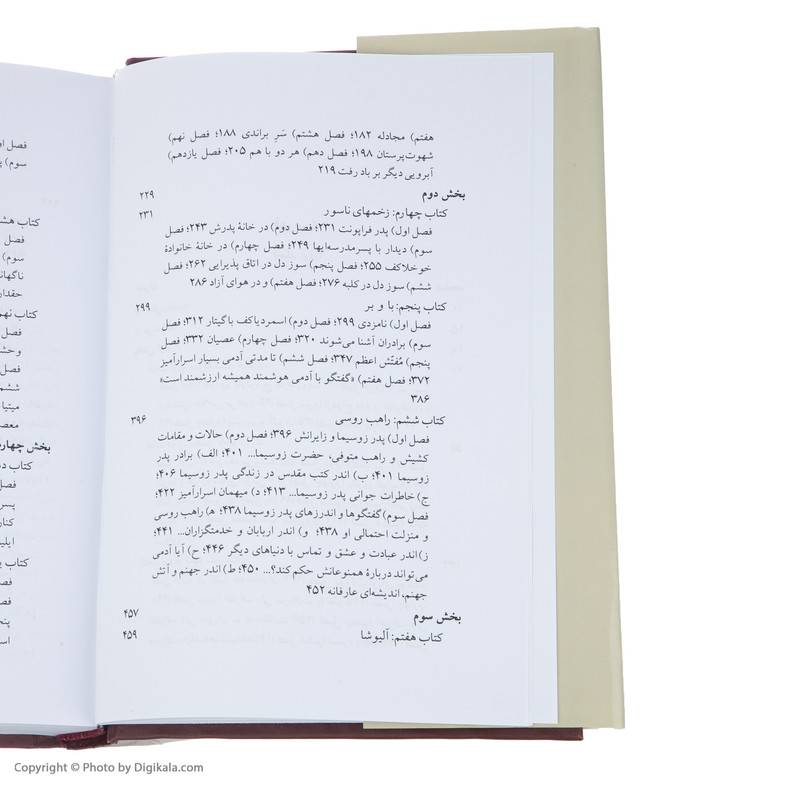 هفتم) مجادله ۱۸۲؛ فصل هشتم) سَرِ براندی ۱۸۸؛ فصل نهم)
شهوت‌پرستان ۱۹۸؛ فصل دهم) هر دو با هم ۲۰۵؛ فصل یازدهم)
آبرویی دیگر بر باد رفت ۲۱۹
بخش دوم ۲۲۹
کتاب چهارم: زخمهای ناسور ۲۳۱
فصل اول) پدر فراپونت ۲۳۱؛ فصل دوم) در خانهٔ پدرش ۲۴۳؛ فصل
سوم) دیدار با پسرمدرسه‌ایها ۲۴۹؛ فصل چهارم) در خانهٔ خانوادهٔ
خوخلاکف ۲۵۵؛ فصل پنجم) سوز دل در اتاق پذیرایی ۲۶۲؛ فصل
ششم) سوز دل در کلبه ۲۷۶؛ فصل هفتم) و در هوای آزاد ۲۸۶
کتاب پنجم: با و بر ۲۹۹
فصل اول) نامزدی ۲۹۹؛ فصل دوم) اسمردیاکف باگیتار ۳۱۲؛ فصل
سوم) برادران آشنا می‌شوند ۳۲۰؛ فصل چهارم) عصیان ۳۳۲؛ فصل
پنجم) مُفتّش اعظم ۳۴۷؛ فصل ششم) تا مدتی آدمی بسیار اسرارآمیز
۳۷۲؛ فصل هفتم) «گفتگو با آدمی هوشمند همیشه ارزشمند است»
۳۸۶
کتاب ششم: راهب روسی ۳۹۶
فصل اول) پدر زوسیما و زایرانش ۳۹۶؛ فصل دوم) حالات و مقامات
کشیش و راهب متوفی، حضرت زوسیما... ۴۰۱؛ الف) برادر پدر
زوسیما ۴۰۱؛ ب) اندر کتب مقدس در زندگی پدر زوسیما ۴۰۶؛
ج) خاطرات جوانی پدر زوسیما... ۴۱۳؛ د) میهمان اسرارآمیز ۴۲۲؛
فصل سوم) گفتگوها و اندرزهای پدر زوسیما ۴۳۸؛ ه) راهب روسی
و منزلت احتمالی او ۴۳۸؛ و) اندر اربابان و خدمتگزاران... ۴۴۱؛
ز) اندر عبادت و عشق و تماس با دنیاهای دیگر ۴۴۶؛ ح) آیا آدمی
می‌تواند دربارهٔ همنوعانش حکم کند؟... ۴۵۰؛ ط) اندر جهنم و آتش
جهنم، اندیشه‌ای عارفانه ۴۵۲
بخش سوم ۴۵۷
کتاب هفتم: آلیوشا ۴۵۹
سوم)
کتاب
فصل
سوم)
کتاب نهم
فصل
فصل
بخش چهار
کتاب
Copyright © Photo by Digikala.com